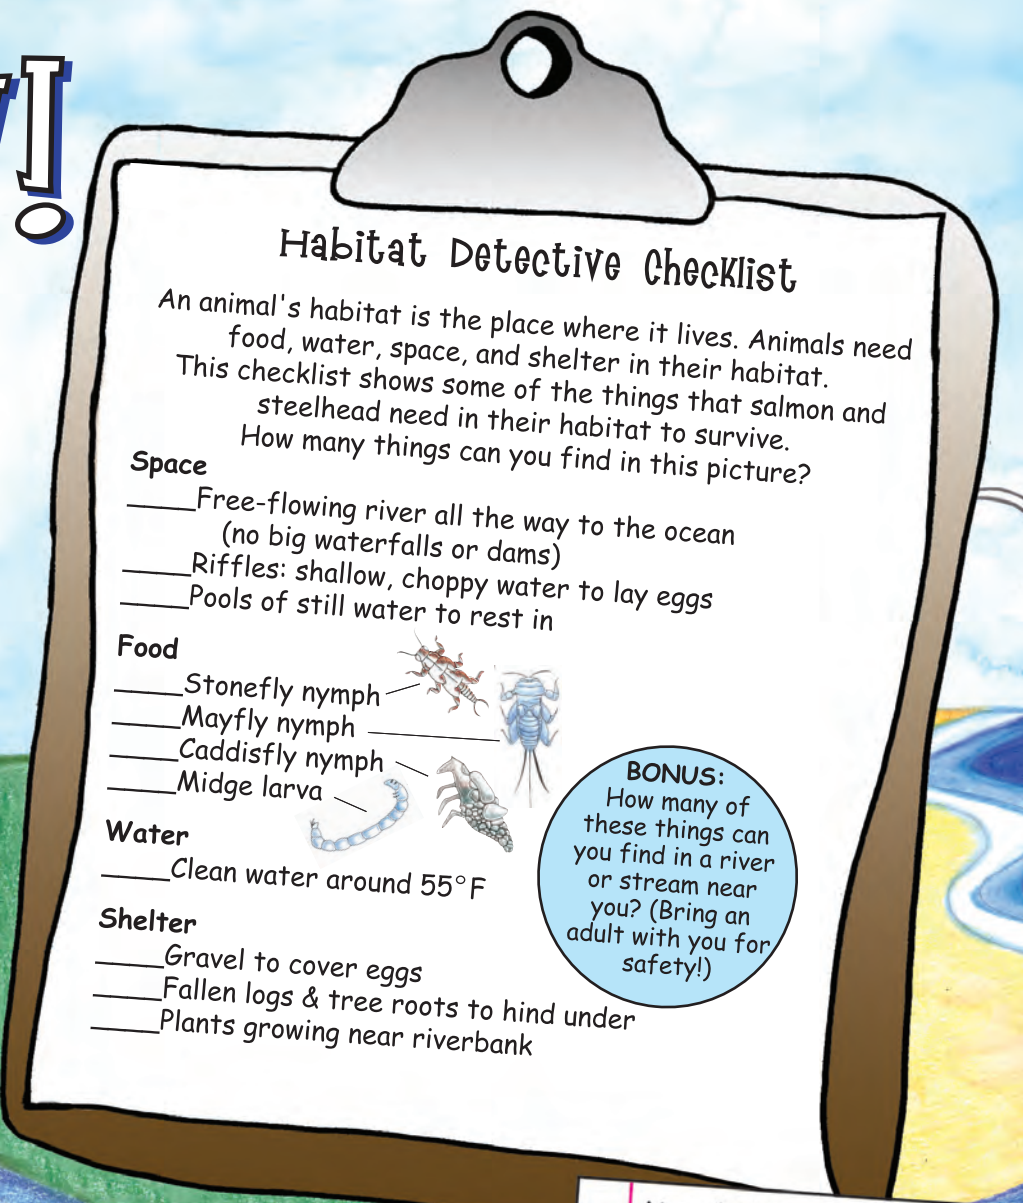 !
Habitat Detective Checklist
An animal's habitat is the place where it lives. Animals need
food, water, space, and shelter in their habitat.
This checklist shows some of the things that salmon and
steelhead need in their habitat to survive.
How many things can you find in this picture?
Space
_____Free-flowing river all the way to the ocean
(no big waterfalls or dams)
_____Riffles: shallow, choppy water to lay eggs
_____Pools of still water to rest in
Food
_____Stonefly nymph
_____Mayfly nymph
_____Caddisfly nymph
_____Midge larva
Water
_____Clean water around 55°F
Shelter
_____Gravel to cover eggs
_____Fallen logs & tree roots to hind under
_____Plants growing near riverbank
BONUS:
How many of
these things can
you find in a river
or stream near
you? (Bring an
adult with you for
safety!)